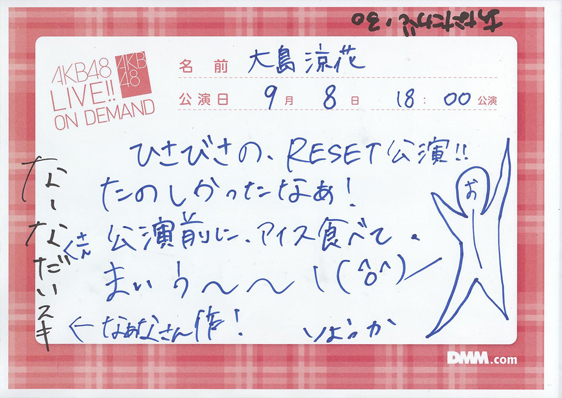 AKB48
LIVE!!
ON DEMAND
AKB
48
名前 大島涼花
公演日 9月 8日 18:00公演
ひさびさの、RESET公演!!
たのしかったなぁ!
公演前に、アイス食べて、
まいう〜〜 \(^o^)/
お
なーなだいスキ
←なぁなさん作!
りょうか
DMM.com